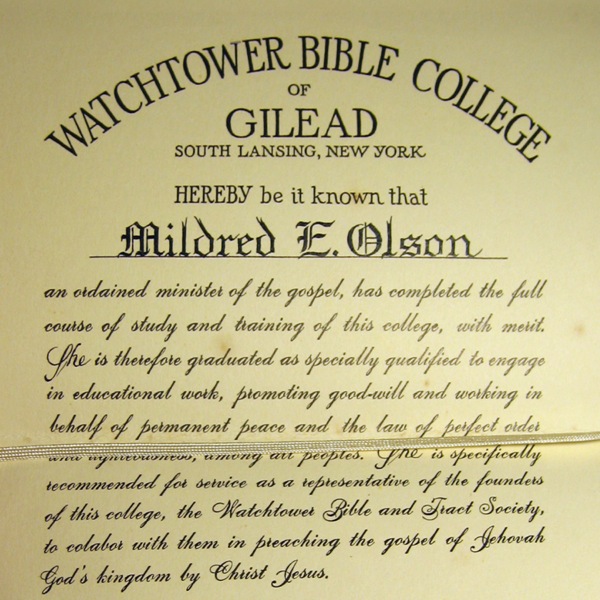 WATCHTOWER BIBLE COLLEGE
OF
GILEAD
SOUTH LANSING, NEW YORK
HEREBY be it known that
Mildred E. Olson
an ordained minister of the gospel, has completed the full
course of study and training of this college, with merit.
She is therefore graduated as specially qualified to engage
in educational work, promoting good-will and working in
behalf of permanent peace and the law of perfect order
and righteousness, among all peoples. She is specifically
recommended for service as a representative of the founders
of this college, the Watchtower Bible and Tract Society,
to colabor with them in preaching the gospel of Jehovah
God's kingdom by Christ Jesus.